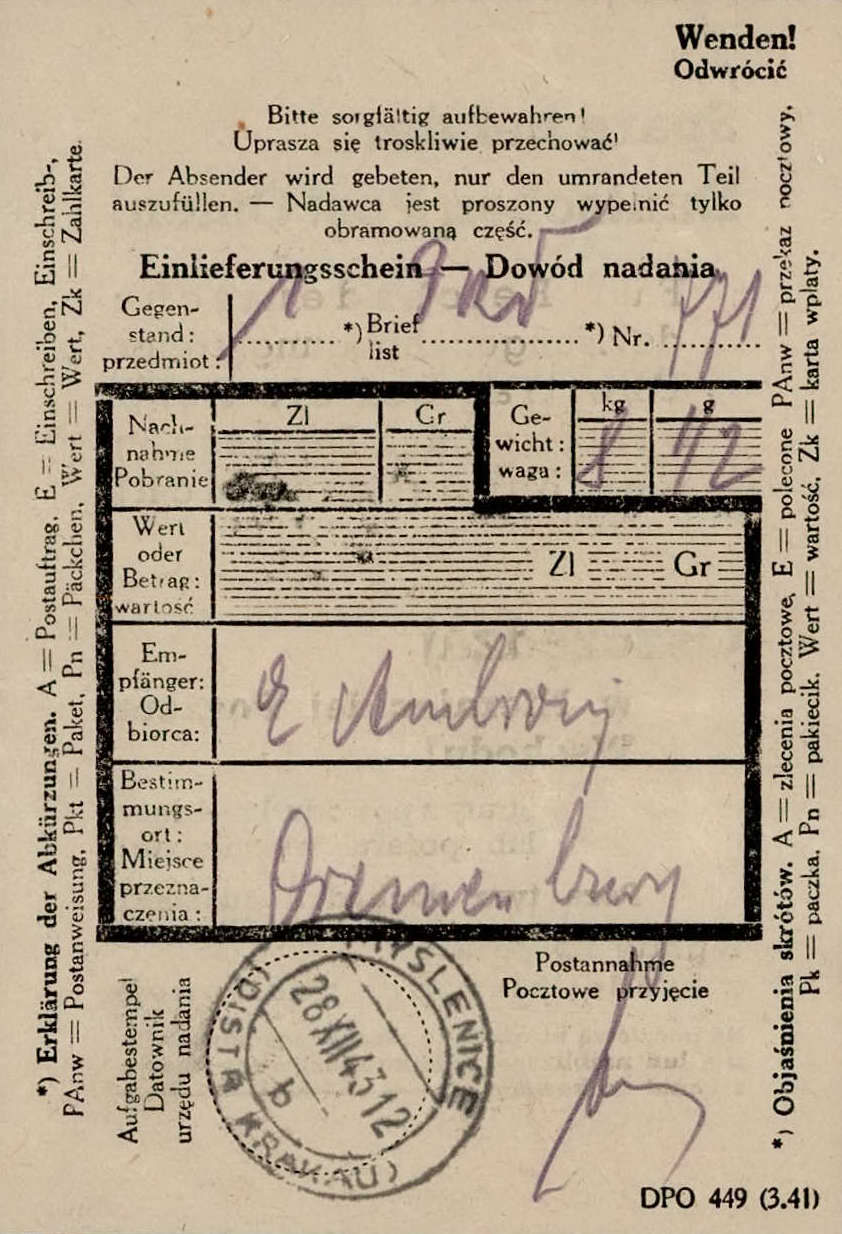 Wenden!
Odwrócić
Bitte sorgfältig aufbewahren!
Uprasza się troskliwie przechować!
Der Absender wird gebeten, nur den umrandeten Teil
auszufüllen. — Nadawca jest proszony wypełnić tylko
obramowaną część.
Einlieferungsschein — Dowód nadania
Gegen-
stand:
przedmiot:
*) Brief
list
*) Nr. 771
Nach-
nahme
Pobranie
Zl Gr
Ge-
wicht:
waga:
kg g
8 1/2
Wert
oder
Betrag:
wartość
Zl Gr
Em-
pfänger:
Od-
biorca:
Bestim-
mungs-
ort:
Miejsce
przezna-
czenia:
Aufgabestempel
Datownik
urzędu nadania
MYŚLENICE
28 XII 43 12
b
(DISTR KRAKAU)
Postannahme
Pocztowe przyjęcie
DPO 449 (3.41)
*) Erklärung der Abkürzungen. A = Postauftrag, E = Einschreiben, Einschreib-,
PAnw = Postanweisung, Pkt = Paket, Pn = Päckchen, Wert = Wert, Zk = Zahlkarte.
*) Objaśnienia skrótów. A = zlecenia pocztowe, E = polecone PAnw = przekaz pocztowy,
Pk = paczka, Pn = pakiecik, Wert = wartość, Zk = karta wpłaty.